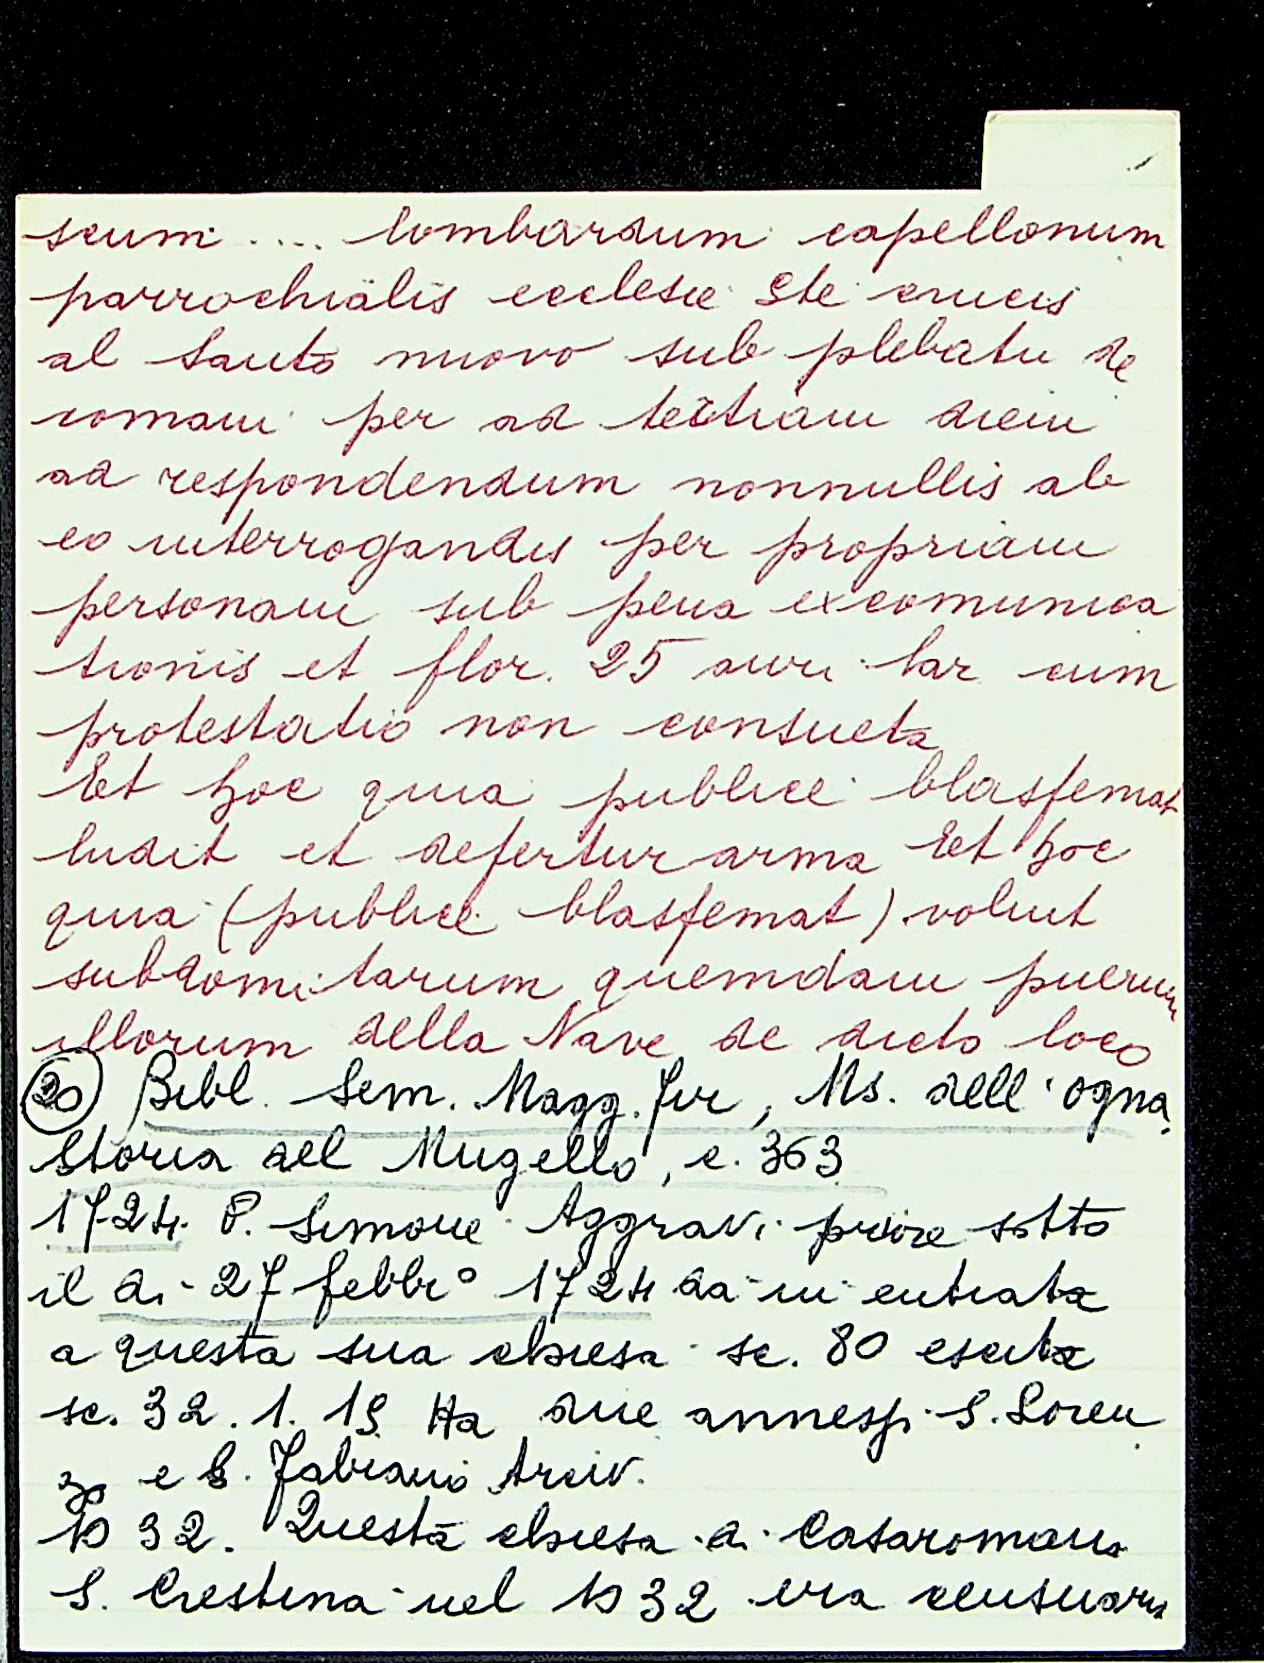 seum .... lombardum capellonum
parrochialis ecclesie Ste crucis
al Santo nuovo sub plebatu de
romani per ad tertiam diem
ad respondendum nonnullis ab
eo interrogandis per propriam
personam sub pena excomunica
tionis et flor. 25 auri lar cum
protestatio non consueta
Et hoc quia publice blasfemat
ludit et defertur arma Et hoc
quia (publice blasfemat) voluit
quemdam puerum
illorum della Nave de dicto loco
(20) Bibl. Sem. Magg. Fir, Ms. dell'Ogna,
Storia del Mugello, c. 363
1724. P. Simone Aggravi priore sotto
il di 27 febbr° 1724 da in entrata
a questa sua chiesa sc. 80 escita
sc. 32. 1. 19 Ha due annessi S. Loren
zo e S. Fabiano Arciv.
1032. Questa chiesa di Casaromana
S. Crestina nel 1032 era censuaria